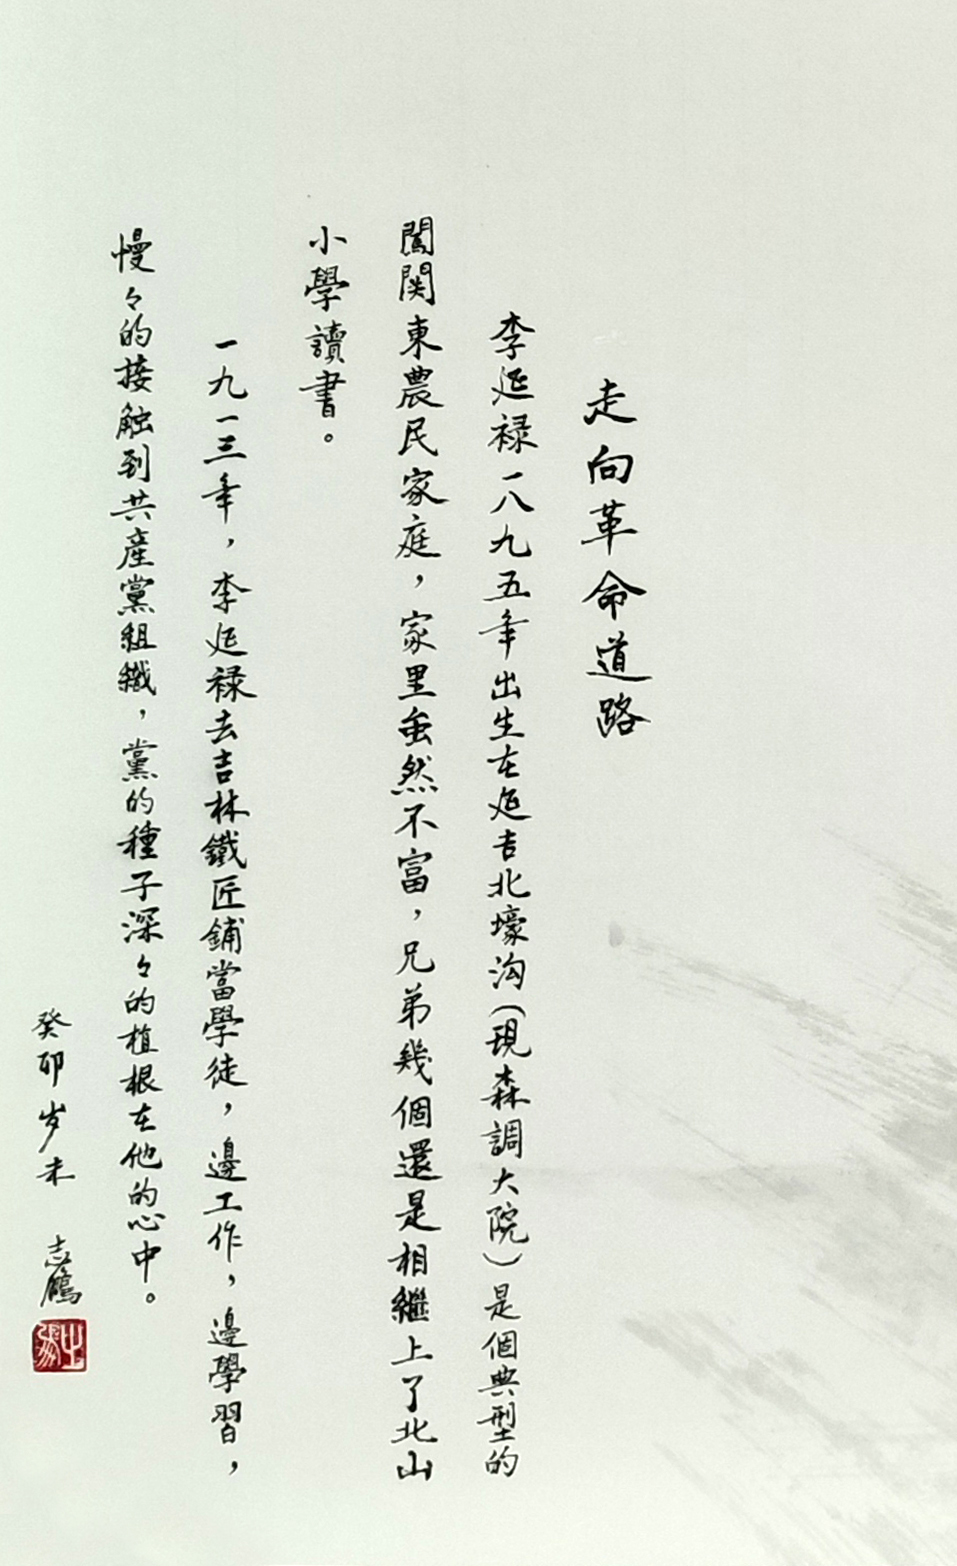 走向革命道路
李延禄一八九五年出生在延吉北壕沟(現森調大院)是個典型的
闖関東農民家庭，家里虽然不富，兄弟幾個還是相繼上了北山
小學讀書。
一九一三年，李延禄去吉林鐵匠鋪當學徒，邊工作，邊學習，
慢々的接触到共產黨組織，黨的種子深々的植根在他的心中。
癸卯岁末 志鵬